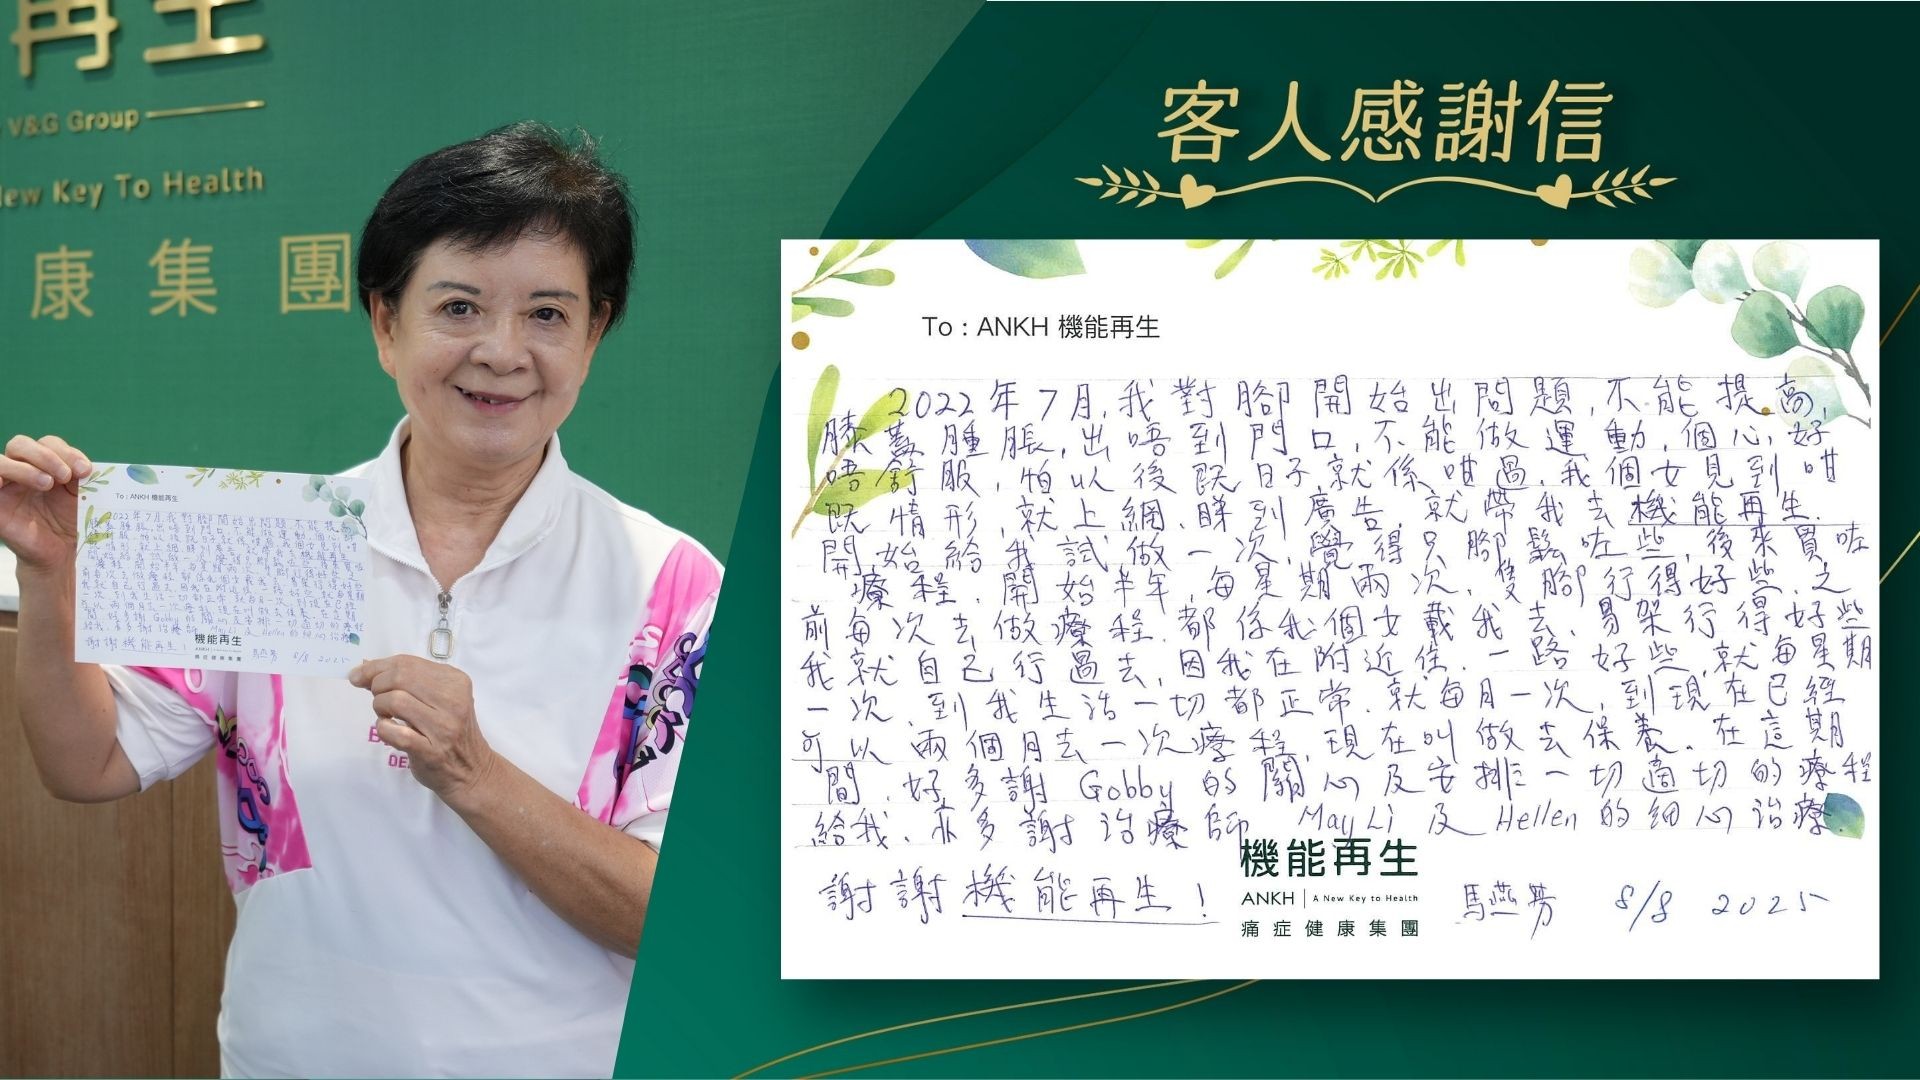 再生
V&G Group
New Key To Health
康集團
客人感謝信
To : ANKH 機能再生
2022年7月,我對腳開始出問題,不能提高,
膝蓋腫脹,出唔到門口,不能做運動,個心好
唔舒服,怕以後既日子就係咁過,我個女見到咁
既情形,就上網,睇到廣告,就帶我去機能再生.
開始給我試做一次,覺得只腳鬆咗些,後來買咗
療程,開始半年,每星期兩次,隻腳行得好些,之
前每次去做療程,都係我個女載我去,易架行得好些
我就自己行過去,因我在附近住,一路好些,就每星期
一次,到我生活一切都正常,就每月一次,到現在已經
可以兩個月去一次療程,現在叫做去保養,在這期
間,好多謝 Gobby 的關心及安排一切適切的療程
給我,亦多謝治療師 May Li 及 Hellen 的細心治療
謝謝機能再生!
機能再生
ANKH | A New Key to Health
痛症健康集團
馬燕芳 8/8 2025